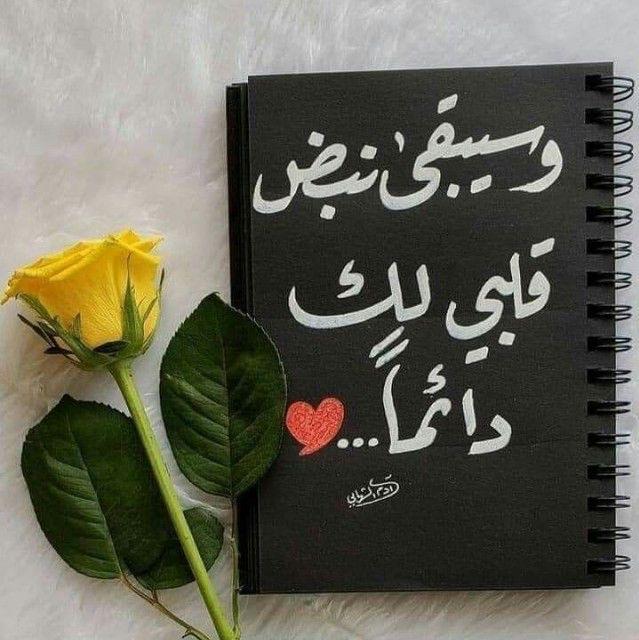 وسيبقىٰ نبض
قلبي لكِ
دائماً...